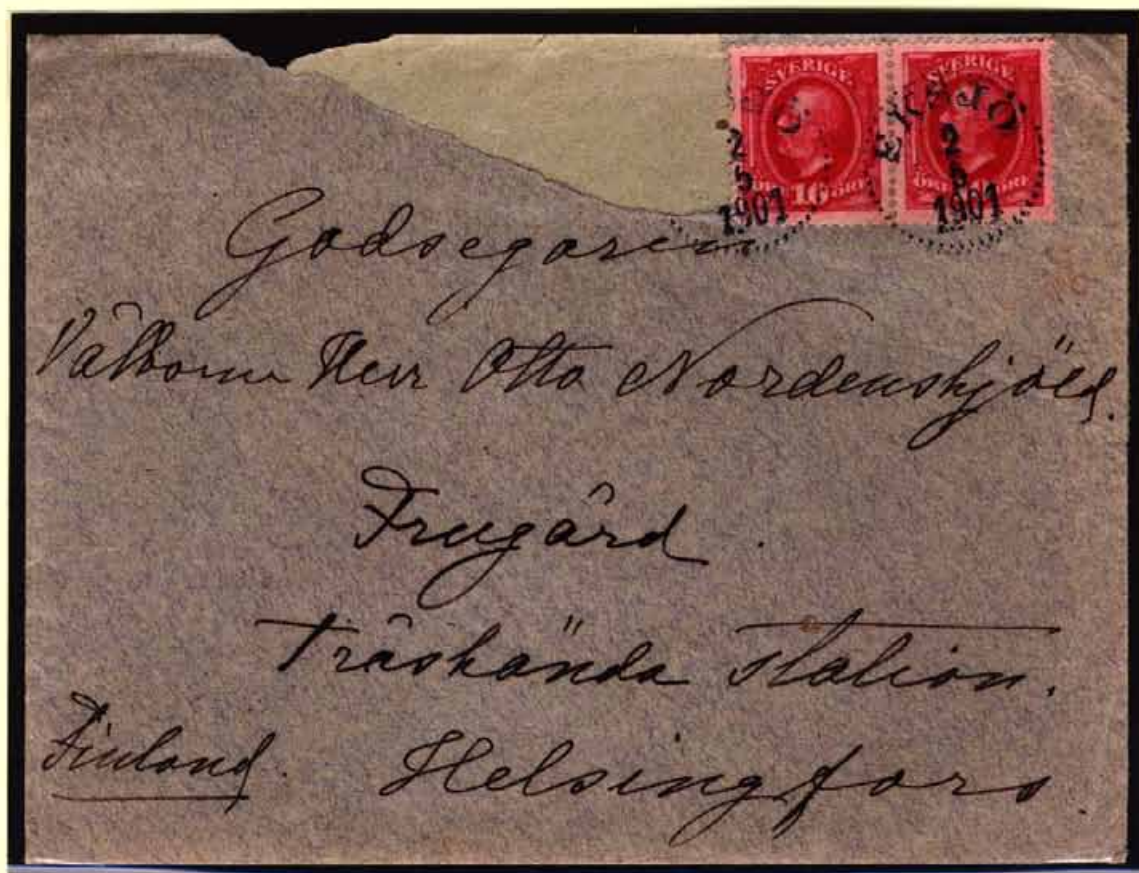 SVERIGE SVERIGE
ÖRE 10 ÖRE ÖRE ÖRE
EKSJÖ
2 2
5 5
1901 1901
Godsegaren
Välborne Herr Otto Nordenskjöld.
Frugård.
Träskända station.
Finland. Helsingfors